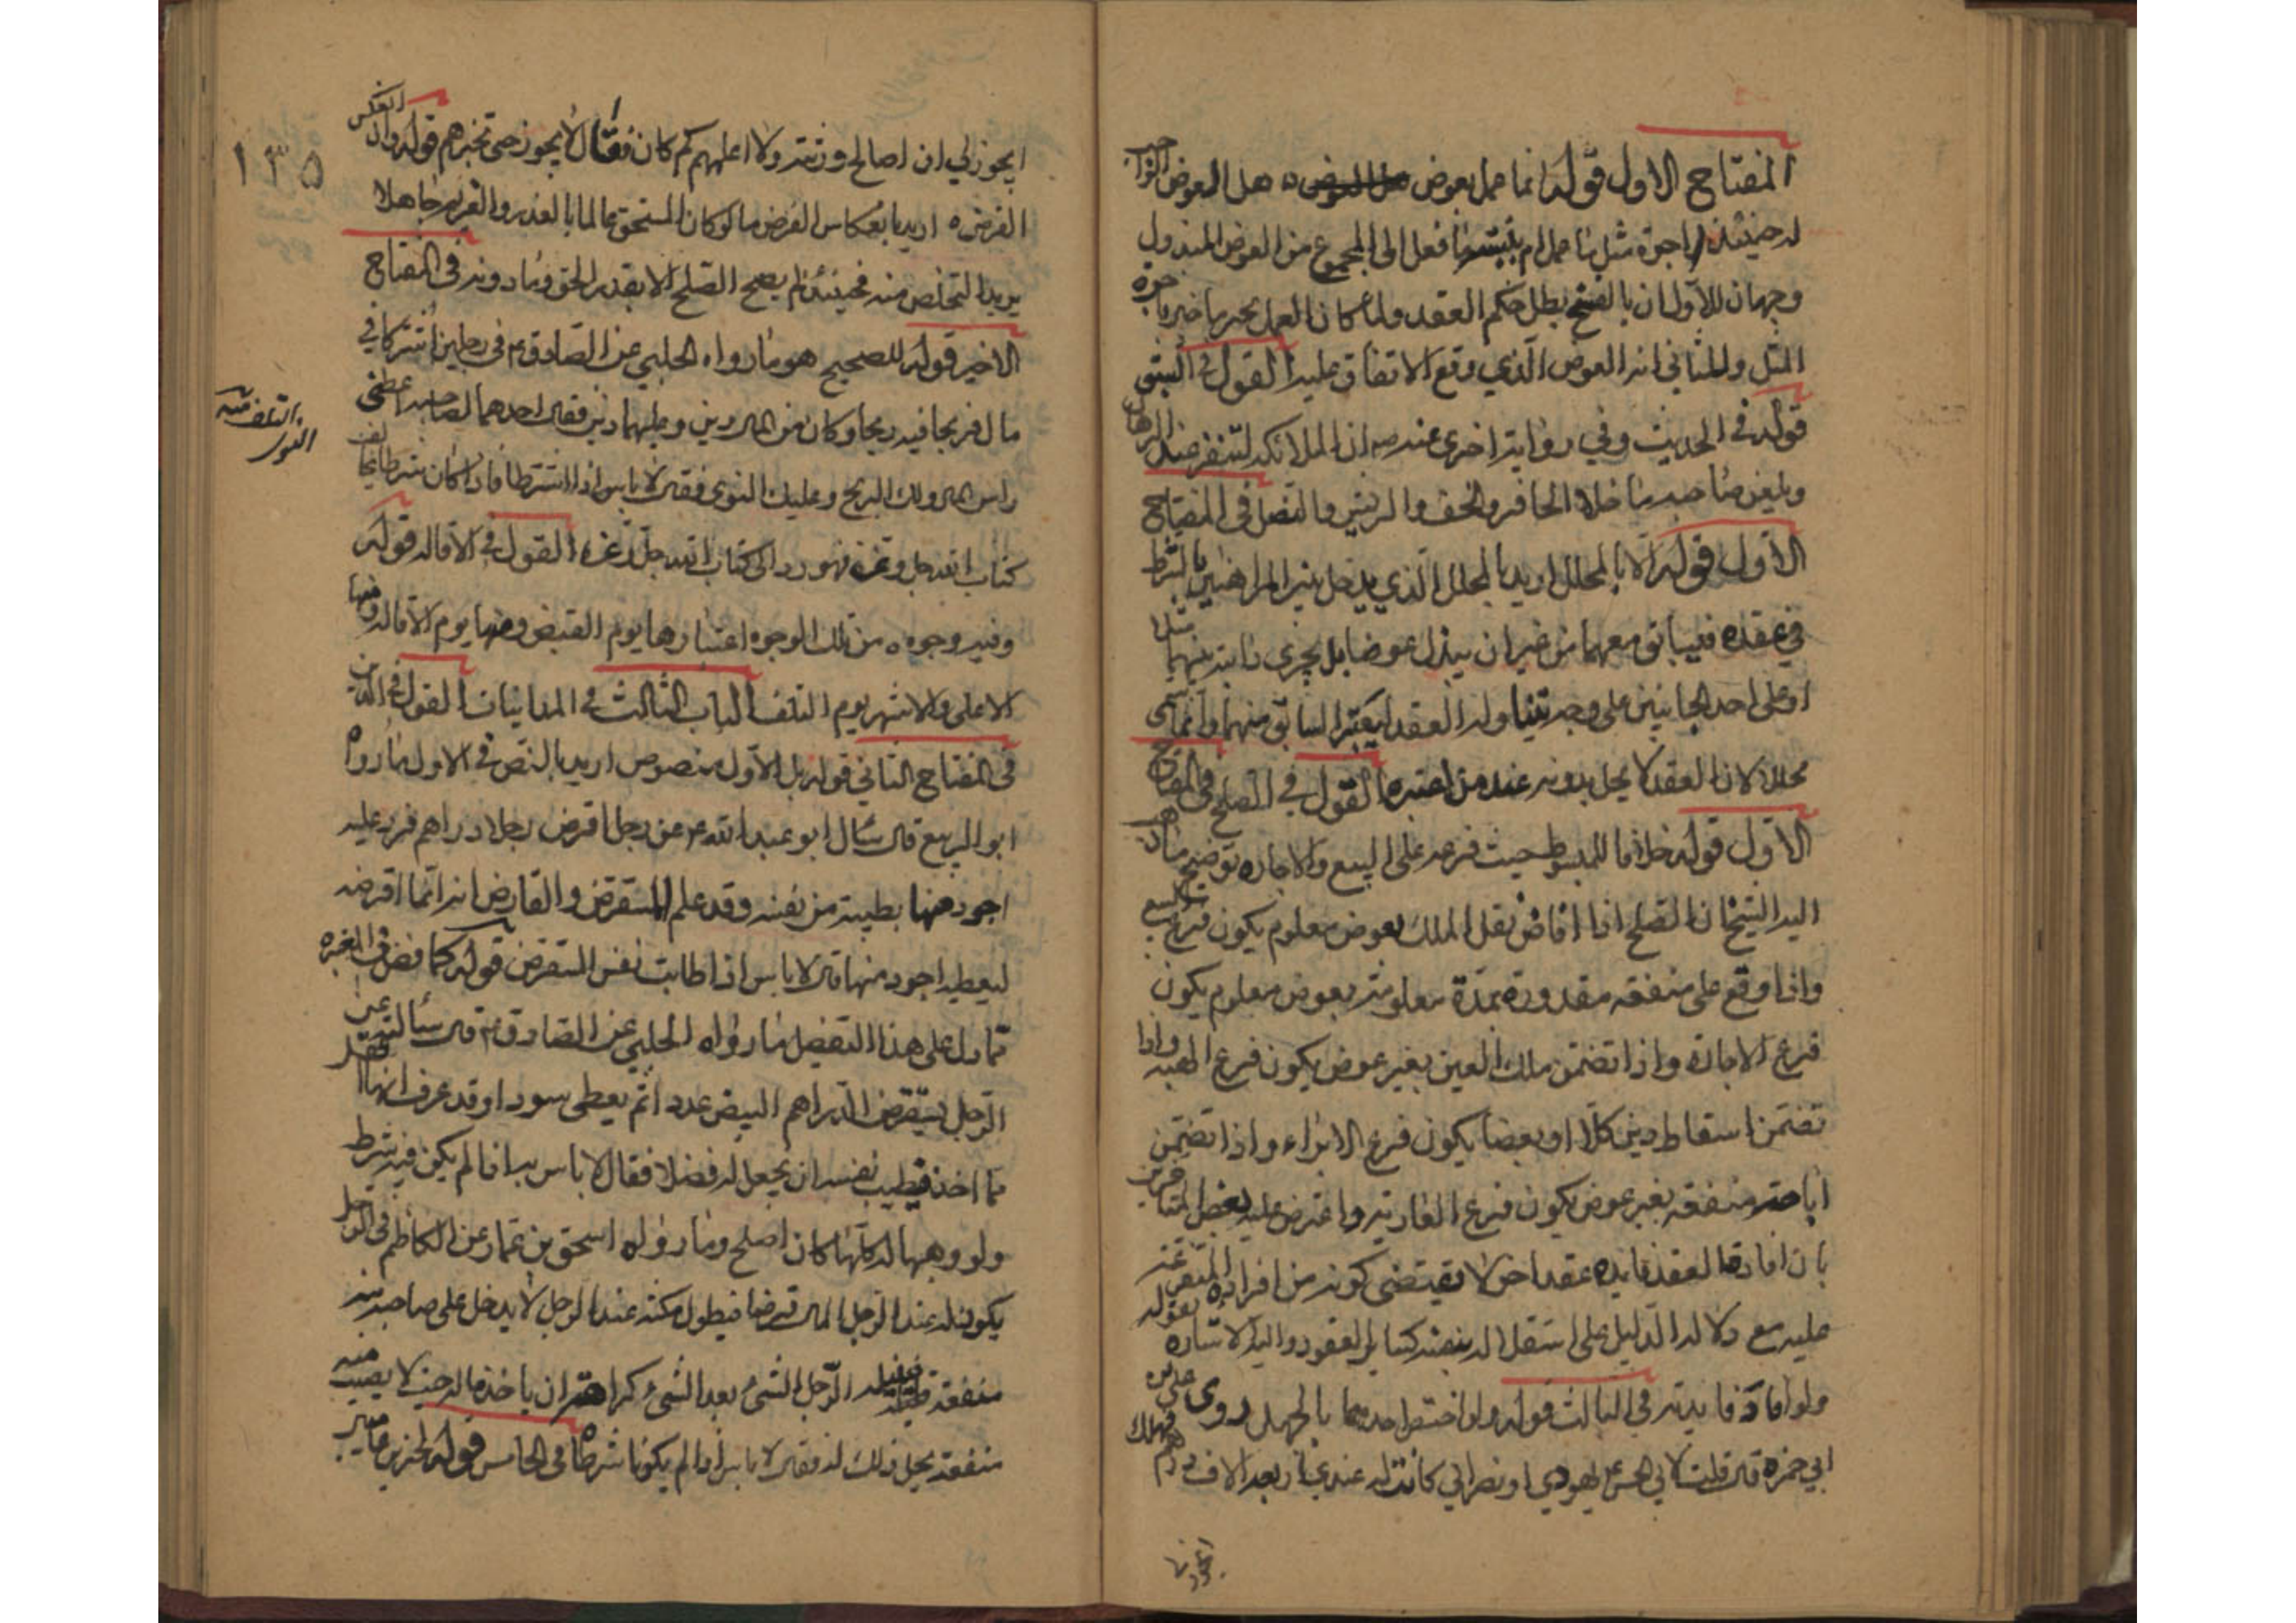 المفتاح الاول قوله انما عمل بعوض هل العوض الواجب
له حينئذ اجرة مثل ما عمل ام بنسبة ما فعل الى المجموع من العوض المبذول
وجهان للاول ان بالفسخ بطل حكم العقد ولما كان العمل محترما جبر باجرة
المثل وللثاني انه العوض الذي وقع الاتفاق عليه القول في السبق
قوله في الحديث وفي رواية اخرى عنه ص ان الملائكة لتنفر عند الرهان
وتلعن صاحبه ما خلا الحافر والخف والريش والنصل في المفتاح
الاول قوله الا بالمحلل اريد بالمحلل الذي يدخل بين المراهنين بالشرط
في عقده فيسابق معهما من غير ان يبذل عوضا بل يجري دابته بينهما
او على احد الجانبين على وجه يتناوله العقد ليعتبر السابق منهما وانما سمي
محللا لان العقد لا يحل بدونه عند من اعتبره القول في الصلح في المفتاح
الاول قوله خلافا للمبسوط حيث فرعه على البيع والاجاره توضيح ما ذهب
اليه الشيخ ان الصلح اذا افاض نقل الملك بعوض معلوم يكون فرع البيع
واذا وقع على منفعه مقدورة بمدة معلومة بعوض معلوم يكون
فرع الاجارة واذا تضمن ملك العين بغير عوض يكون فرع الهبه واذا
تضمن اسقاط دين كلا او بعضا يكون فرع الابراء واذا تضمن
اباحة منفعة بغير عوض يكون فرع العارية واعترض عليه بعض المتاخرين
بان افادة العقد فايده عقد اخر لا يقتضي كونه من افراده المتفرعة
عليه مع دلالة الدليل على استقلاله بنفسه كساير العقود واليه الاشاره بقوله
ولو افاد فايدته في الثالث قوله وان اختص احدهما بالجهل روى علي بن
ابي حمزه قال قلت لابي الحسن ع يهودي او نصراني كانت له عندي اربعة الاف درهم فهلك
ايجوز لي
١٣٥
ايجوز لي ان اصالح ورثته ولا اعلمهم كم كان فقال لا يجوز حتى تخبرهم قوله وان انعكس
الفرض ه اريد بانعكاس الفرض ما لو كان المستحق عالما بالقدر والغريم جاهلا
يريد التخلص منه فحينئذ لم يصح الصلح الا بقدر الحق وما دونه في المفتاح
الاخير قوله للصحيح هو ما رواه الحلبي عن الصادق ع في رجلين اشتركا في
مال فربحا فيه ربحا وكان من المال دين وعليهما دين فقال احدهما لصاحبه اعطني
راس المال ولك الربح وعليك التوى فقال لا باس اذا اشترطا فاذا كان شرطا يخالف
كتاب الله جل وعز فهو رد الى كتاب الله جل وعز القول في الاقاله قوله
وفيه وجوه ه من تلك الوجوه اعتبارها يوم القبض ومنها يوم الاقاله ومنها
الاعلى والاشهر يوم التلف الباب الثالث في المداينات القول في الدين
في المفتاح الثاني قوله بل الاول منصوص اريد بالنص في الاول ما رواه
ابو الربيع قال سئال ابو عبد الله ع عن رجل اقرض رجلا دراهم فرد عليه
اجود منها بطيبة من نفسه وقد علم المستقرض والقارض انه انما اقرضه
ليعطيه اجود منها قال لا باس اذا طابت نفس المستقرض قوله كما في المعتبره
مما دل على هذا التفصيل ما رواه الحلبي عن الصادق ع قال سئالته عن
الرجل يستقرض الدراهم البيض عددا ثم يعطى سودا وقد عرف انها اثقل
مما اخذ فيطيب نفسه ان يجعل له فضلا فقال لا باس به اذا لم يكن فيه شرط
ولو وهبها له كلها كان اصلح وما رواه اسحق بن عمار عن الكاظم في الرجل
يكون له عند الرجل المال قرضا فيطول مكثه عند الرجل لا يدخل على صاحبه منه
منفعة فينيله الرجل الشئ بعد الشئ كراهة ان ياخذ ماله حيث لا يصيب منه
منفعة يحل ذلك له فقال لا باس اذا لم يكونا شرطاه في الخامس قوله
التلف منه
التوى